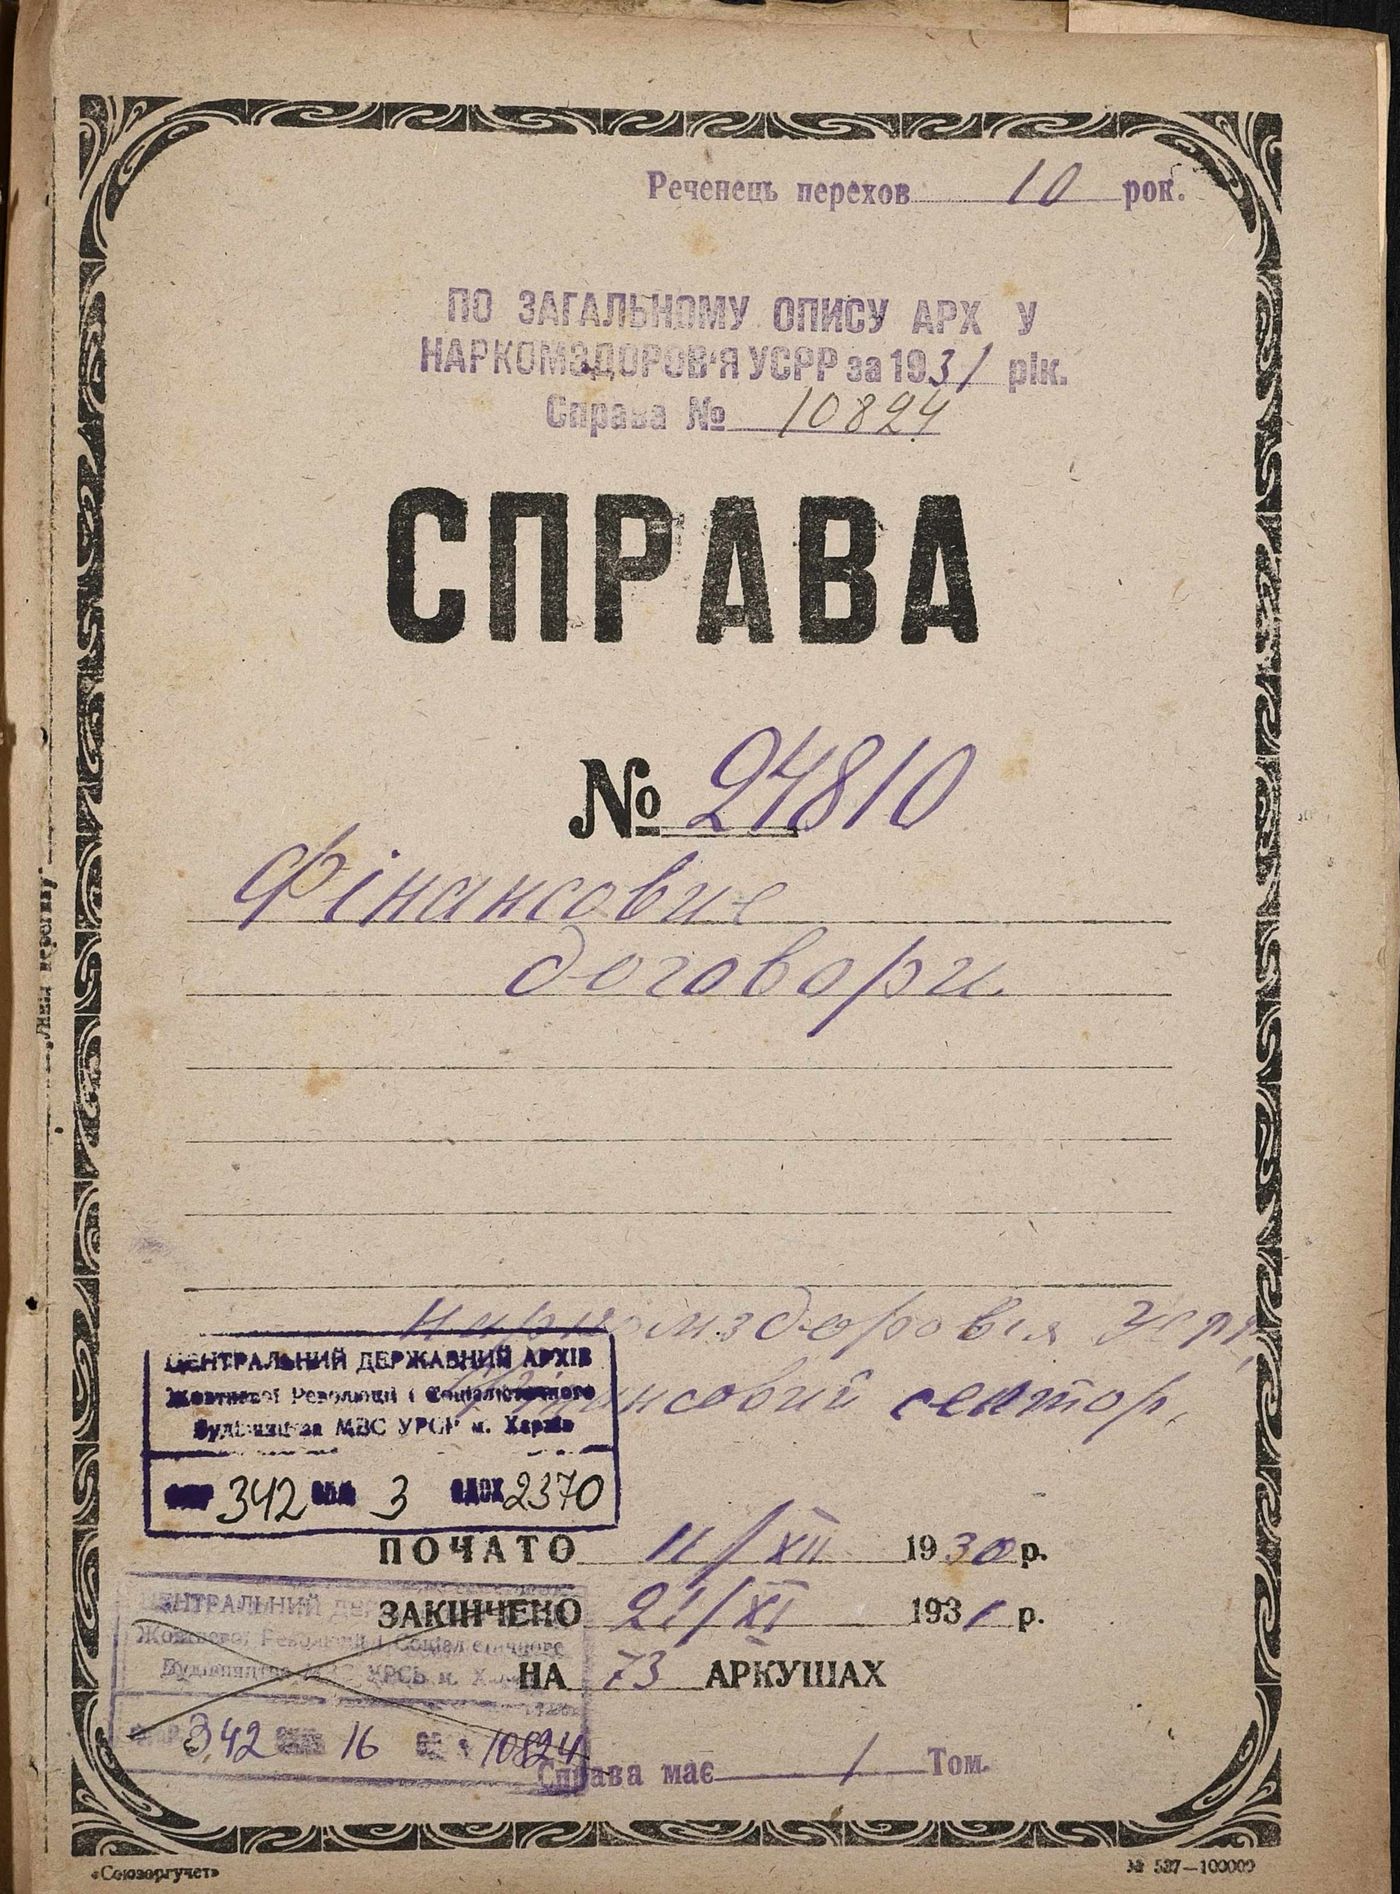 Реченець перехов 10 рок.
ПО ЗАГАЛЬНОМУ ОПИСУ АРХ У
НАРКОМЗДОРОВ'Я УСРР за 1931 рік.
Справа № 10824
СПРАВА
№ 24810
Фінансовие
договори
Наркомздоровія УСРР,
Фінансовий сектор,
ЦЕНТРАЛЬНИЙ ДЕРЖАВНИЙ АРХІВ
Жовтневої Революції і Соціалістичного
Будівництва МВС УРСР м. Харків
342 3 2370
ПОЧАТО 11/XII 1930 р.
ЗАКІНЧЕНО 21/XI 1931 р.
НА 73 АРКУШАХ
ЦЕНТРАЛЬНИЙ
Жовтневої Революції і Соціалістичного
Будівництва МВС УРСР м.
342 16 10824
Справа має 1 Том.
«Союзоргучет»
№ 537—100000